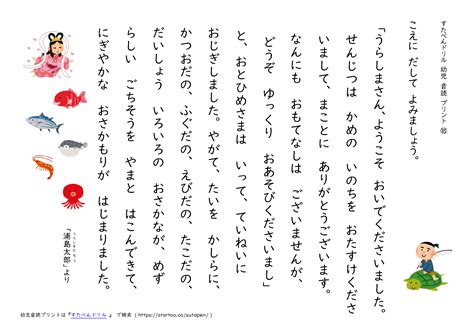 すたぺんドリル 幼児 音読 プリント ⑫
こえに だして よみましょう。
「うらしまさん、ようこそ おいでくださいました。
せんじつは かめの いのちを おたすけくださ
いまして、まことに ありがとうございます。
なんにも おもてなしは ございませんが、
どうぞ ゆっくり おあそびくださいまし」
と、おとひめさまは いって、ていねいに
おじぎしました。やがて、たいを かしらに、
かつおだの、ふぐだの、えびだの、たこだの、
だいしょう いろいろの おさかなが、めず
らしい ごちそうを やまと はこんできて、
にぎやかな おさかもりが はじまりました。
うらしまたろう
「浦島太郎」より
幼児音読プリントは『すたぺんドリル 』 で検索 ( https://startoo.co/sutapen/ )